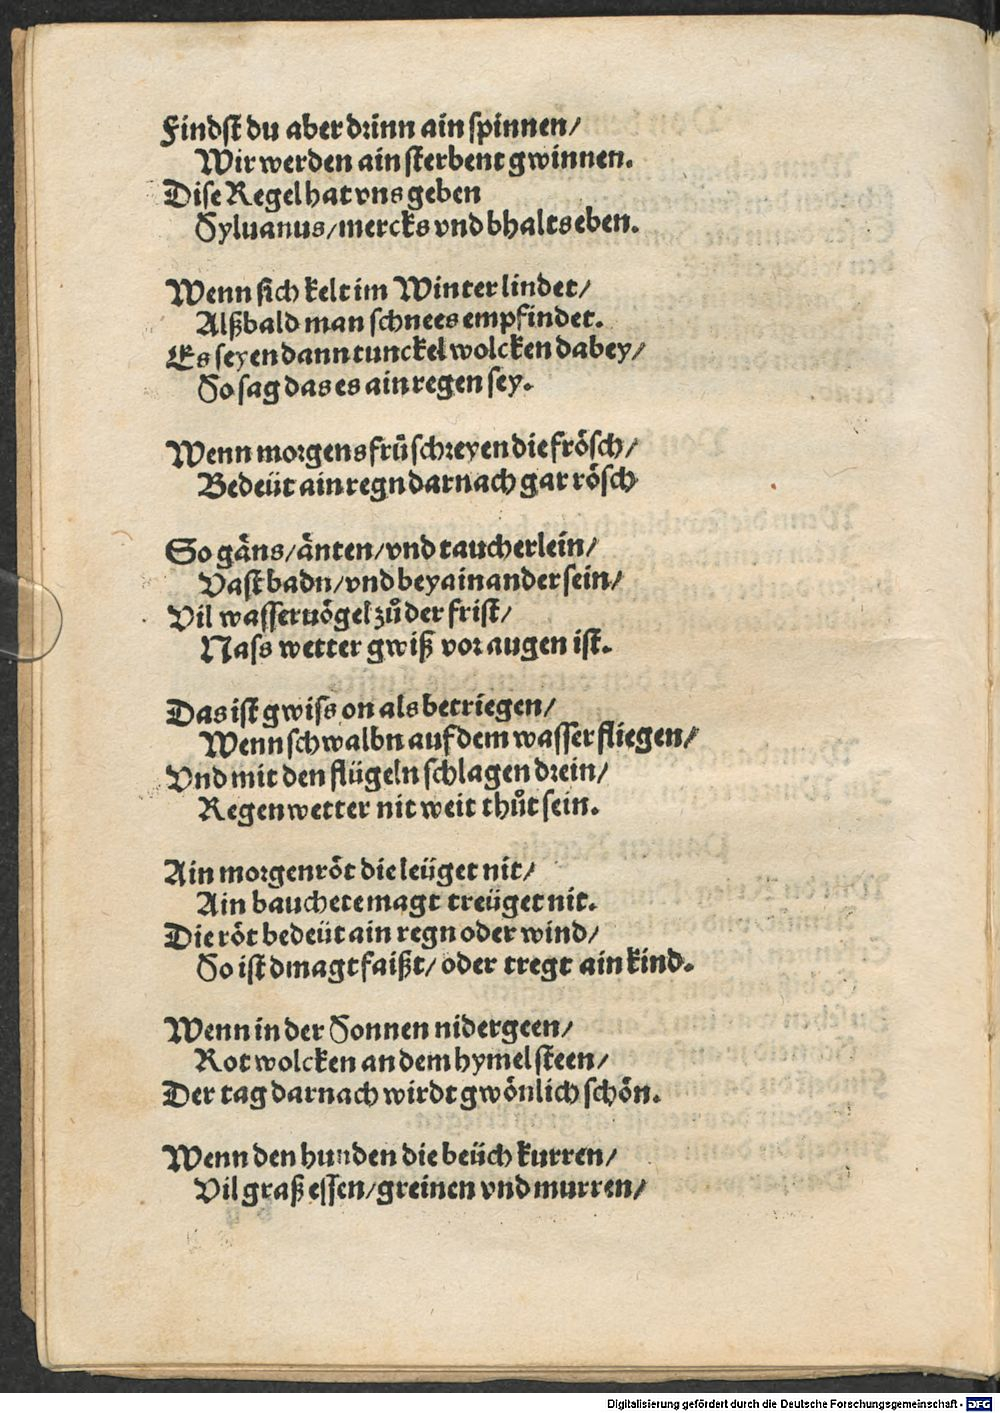 Findst du aber drinn ain spinnen/
Wir werden ain sterbent gwinnen.
Dise Regel hat vns geben
Syluanus/mercks vnd bhalts eben.
Wenn sich kelt im Winter lindet/
Alßbald man schnees empfindet.
Es seyen dann tunckel wolcken dabey/
So sag das es ain regen sey.
Wenn morgens frů schreyen die frösch/
Bedeüt ain regn darnach gar rösch
So gäns/änten/vnd taucherlein/
Vast badn/vnd bey ainander sein/
Vil wasseruögel zů der frist/
Nass wetter gwiß vor augen ist.
Das ist gwiss on als betriegen/
Wenn schwalbn auf dem wasser fliegen/
Vnd mit den flügeln schlagen drein/
Regenwetter nit weit thůt sein.
Ain morgenröt die leüget nit/
Ain bauchete magt treüget nit.
Die röt bedeüt ain regn oder wind/
So ist dmagt faißt/ oder tregt ain kind.
Wenn in der Sonnen nidergeen/
Rot wolcken an dem hymel steen/
Der tag darnach wirdt gwönlich schön.
Wenn den hunden die beüch kurren/
Vil graß essen/greinen vnd murren/
Digitalisierung gefördert durch die Deutsche Forschungsgemeinschaft - DFG